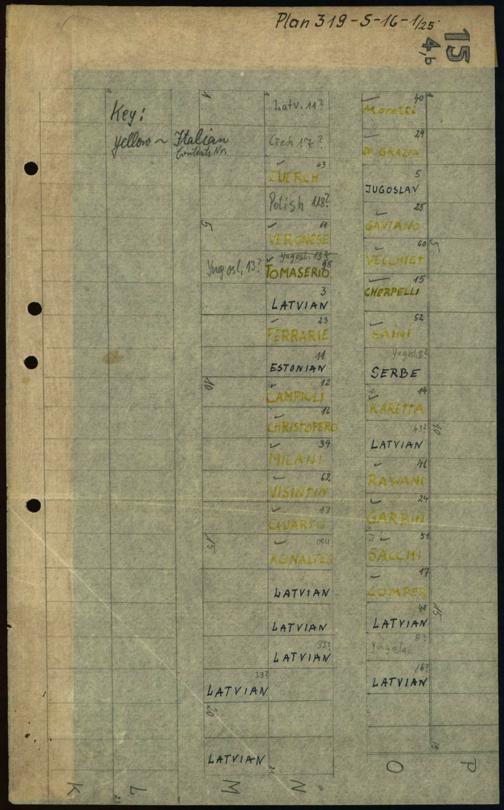 Plan 319-S-16-1/25
15
4,b
Key:
yellow ~ Italian
Contents Nr.
1
Latv. 11?
Czech 17?
43
ZUERCH
Polish 118?
5
11
VERONESE
Yugosl. 13?
Yugosl. 13?
95
TOMASERIO
3
LATVIAN
23
FERRARIE
11
ESTONIAN
10
12
CAMPIOLI
CHRISTOFERO
39
MILANI
62
VISINTIN
13
15
AGNALTES
LATVIAN
LATVIAN
33?
LATVIAN
33?
LATVIAN
20
LATVIAN
40
Moretti
29
DI GRAZIA
5
JUGOSLAV
25
GAVIANO
60
5
VECCHIET
15
CHERPELLI
52
SAINI
Yugosl. 8?
SERBE
14
KARETTA
10
43?
LATVIAN
46
RAWANI
24
GARBIN
51
SACCHI
17
GOMPER
15
48
LATVIAN
8?
Yugosl.
16?
LATVIAN
K
L
M
N
O
P